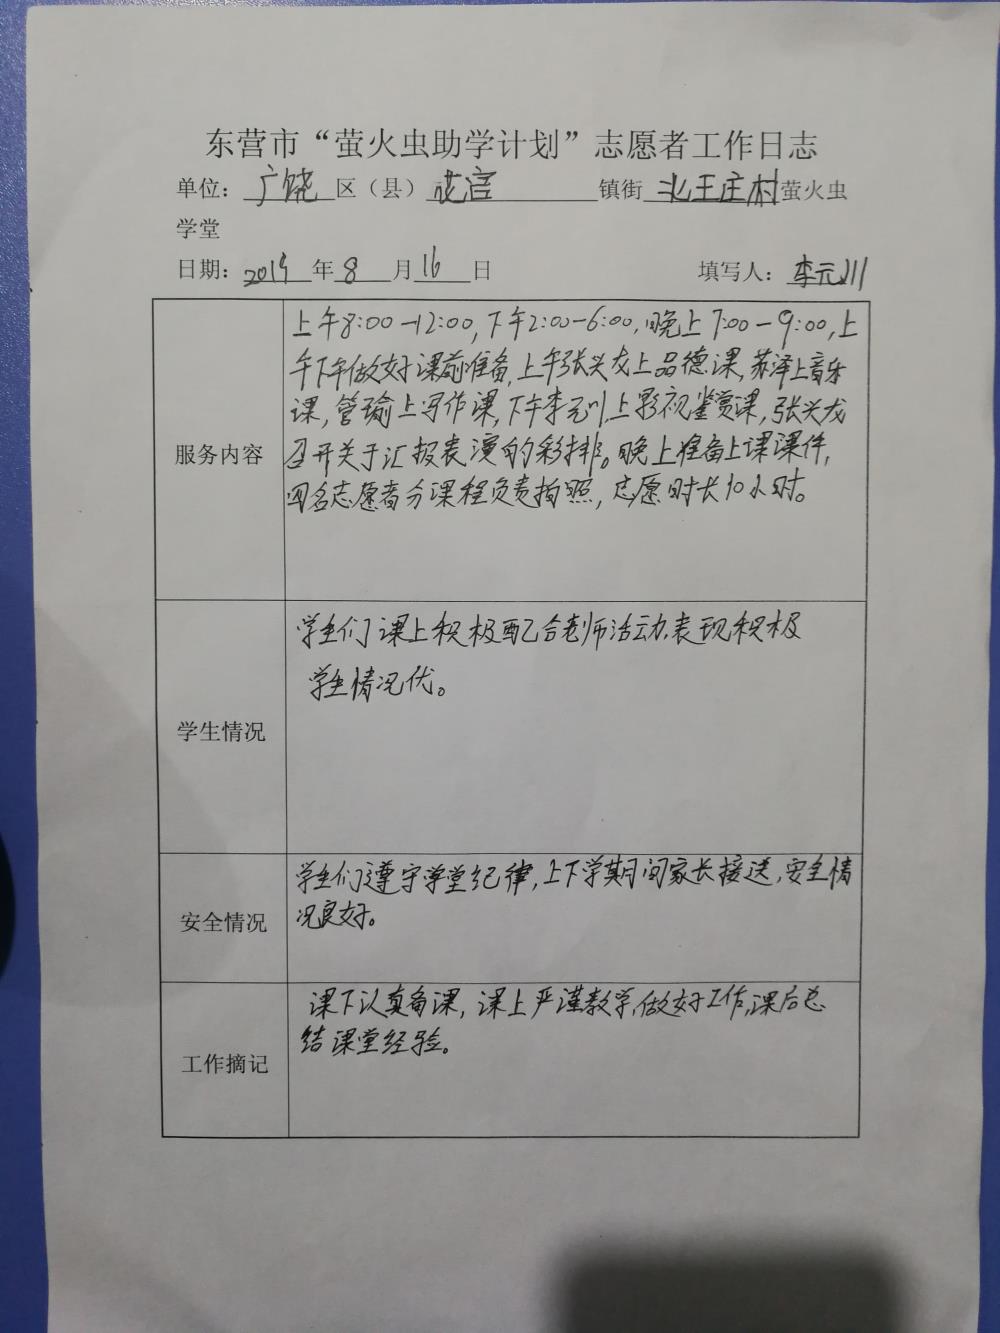 东营市“萤火虫助学计划”志愿者工作日志
单位：广饶区（县）花官镇街北王庄村萤火虫
学堂
日期：2019年8月16日 填写人：李元川
服务内容
上午8:00-12:00,下午2:00-6:00,晚上7:00-9:00,上
午下午做好课前准备,上午张兴龙上品德课,苏泽上音乐
课,管瑜上写作课,下午李元川上影视鉴赏课,张兴龙
召开关于汇报表演的彩排。晚上准备上课课件,
四名志愿者分课程负责拍照,志愿时长10小时。
学生情况
学生们课上积极配合老师活动.表现积极
学生情况优。
安全情况
学生们遵守学堂纪律,上下学期间家长接送,安全情
况良好。
工作摘记
课下认真备课,课上严谨教学,做好工作,课后总
结课堂经验。